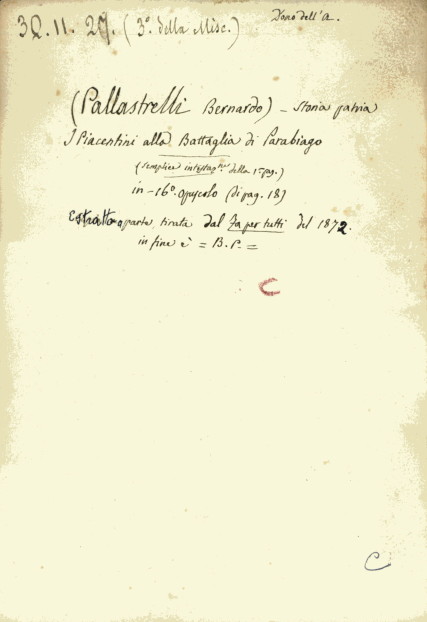 3Q.11.27. (3º della Misc.)
Dono dell'A.
(Pallastrelli Bernardo) - Storia patria
I Piacentini alla Battaglia di Parabiago
(semplice intestazne della 1ª pag.)
in-16º. opuscolo (di pag. 18)
Estratto a parte, tirata dal Fa per tutti del 1872.
in fine è = B. P. =
C
C